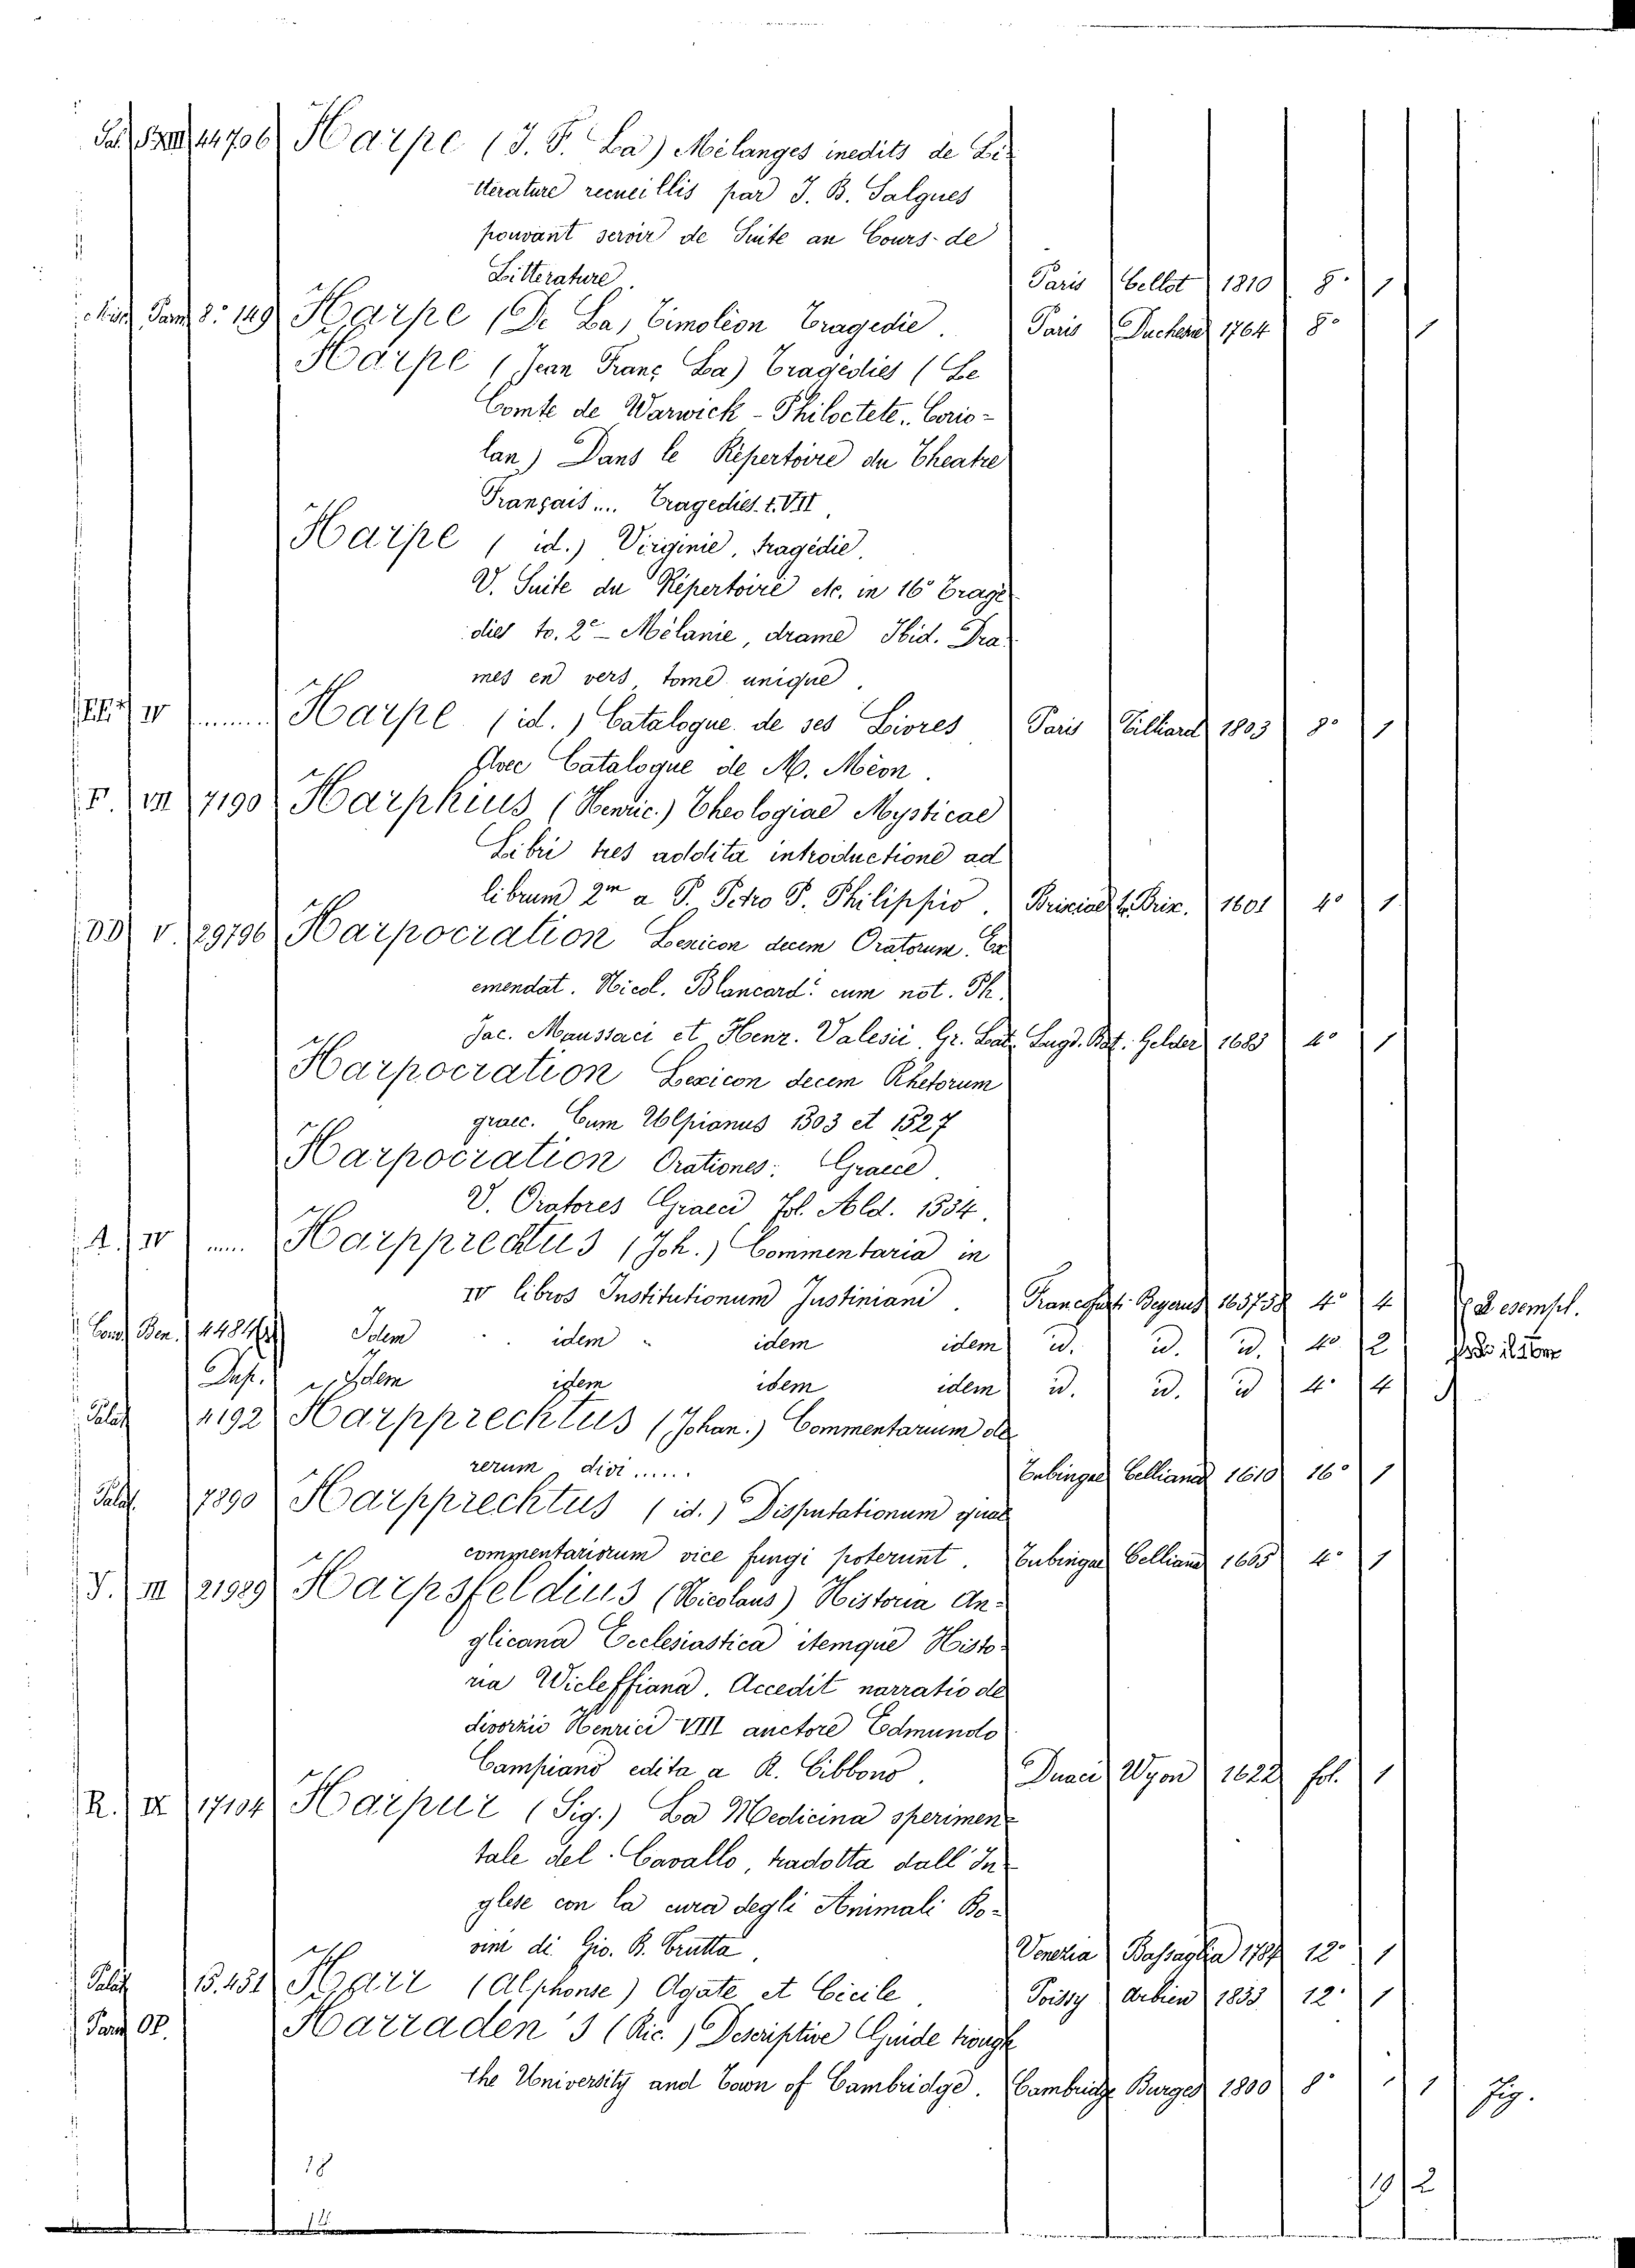 Pal. XVIII 44706 Harpe (J. F. La) Mélanges inedits de Li-
tterature recueillis par J. B. Salgues
pouvant servir de Suite au Cours de
Litterature. Paris Cellot 1810 8.° 1
Misc. Parm 8.° 149 Harpe (De La) Timoléon Tragedie. Paris Duchesne 1764 8° 1
Harpe (Jean Franç La) Tragédies (Le
Comte de Warwick - Philoctete.. Corio-
lan) Dans le Répertoire du Theatre
Français.... Tragedies. t. VII.
Harpe (id.) Virginie, tragédie.
V. Suite du Répertoire etc. in 16° Tragé
dies to. 2° - Mélanie, drame Ibid. Dra-
mes en vers, tome unique.
IV ...... Harpe (id.) Catalogue de ses Livres Paris Tilliard 1803 8° 1
Avec Catalogue de M. Méon.
F. VII 7190 Harphius (Henric.) Theologiae Mysticae
Libri tres addita introductione ad
librum 2m a P. Petro P. Philippio. Brixiae t. Brix. 1601 4° 1
DD V. 29796 Harpocration Lexicon decem Oratorum. Ex
emendat. Nicol. Blancardi cum not. Ph.
Jac. Maussaci et Henr. Valesii. Gr. Lat. Lugd. Bat. Gelder 1683 4° 1
Harpocration Lexicon decem Rhetorum
graec. Cum Ulpianus 1503 et 1527
Harpocration Orationes: Graece.
V. Oratores Graeci fol. Ald. 1534.
A. IV ...... Harpprectus (Joh.) Commentaria in
IV libros Institutionum Justiniani. Francofurti Beyerus 1657 58 4° 4 2 esempl.
Cons. Ben. 4484 Idem idem idem idem id. id. id. 4° 2
Dup. Idem idem idem idem id. id. id 4° 4
Palat 4192 Harpprechtus (Johan.) Commentarium de
rerum divi...... Tubingae Celliana 1610 16° 1
Palat. 7890 Harpprechtus (id.) Disputationum quae
commentariorum vice fungi poterunt. Tubingae Celliana 1605 4° 1
J. III 21989 Harpsfeldius (Nicolaus) Historia An-
glicana Ecclesiastica itemque Histo-
ria Wicleffiana. Accedit narratio de
divorzio Henrici VIII auctore Edmundo
Campiano edita a R. Gibbono. Duaci Wyon 1622 fol. 1
R. IX 17104 Harpur (Sig.) La Medicina sperimen-
tale del Cavallo, tradotta dall' In-
glese con la cura degli Animali Bo-
vini di Gio. B. Trutta. Venezia Bassaglia 1784 12° 1
Palat 15.451 Harr (Alphonse) Agate et Cécile. Poissy Arbieu 1853 12° 1
Parm OP. Harraden's (Ric.) Descriptive Guide trough
the University and Town of Cambridge. Cambridge Burges 1800 8° 1 Fig.
18
19 2